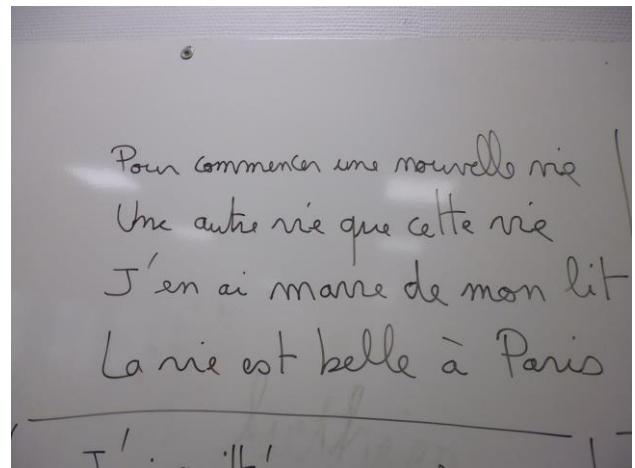 Pour commencer une nouvelle vie
Une autre vie que cette vie
J'en ai marre de mon lit
La vie est belle à Paris